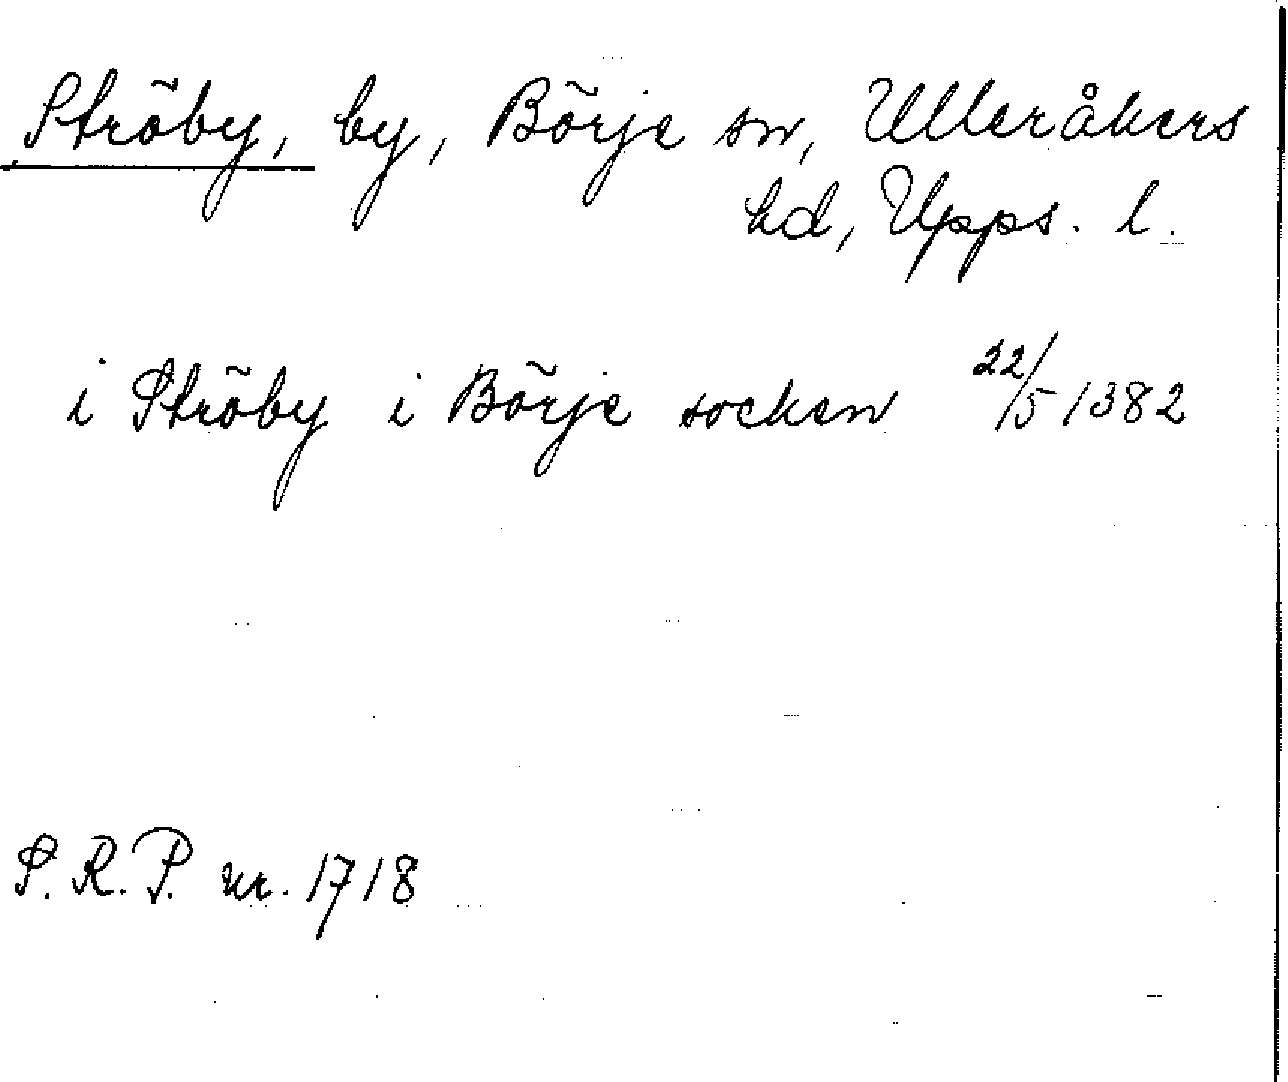 Ströby, by, Börje sn, Ulleråkers
hd, Upps. l.
i Ströby i Börje socken 22/5 1382
S.R.P. nr. 1718